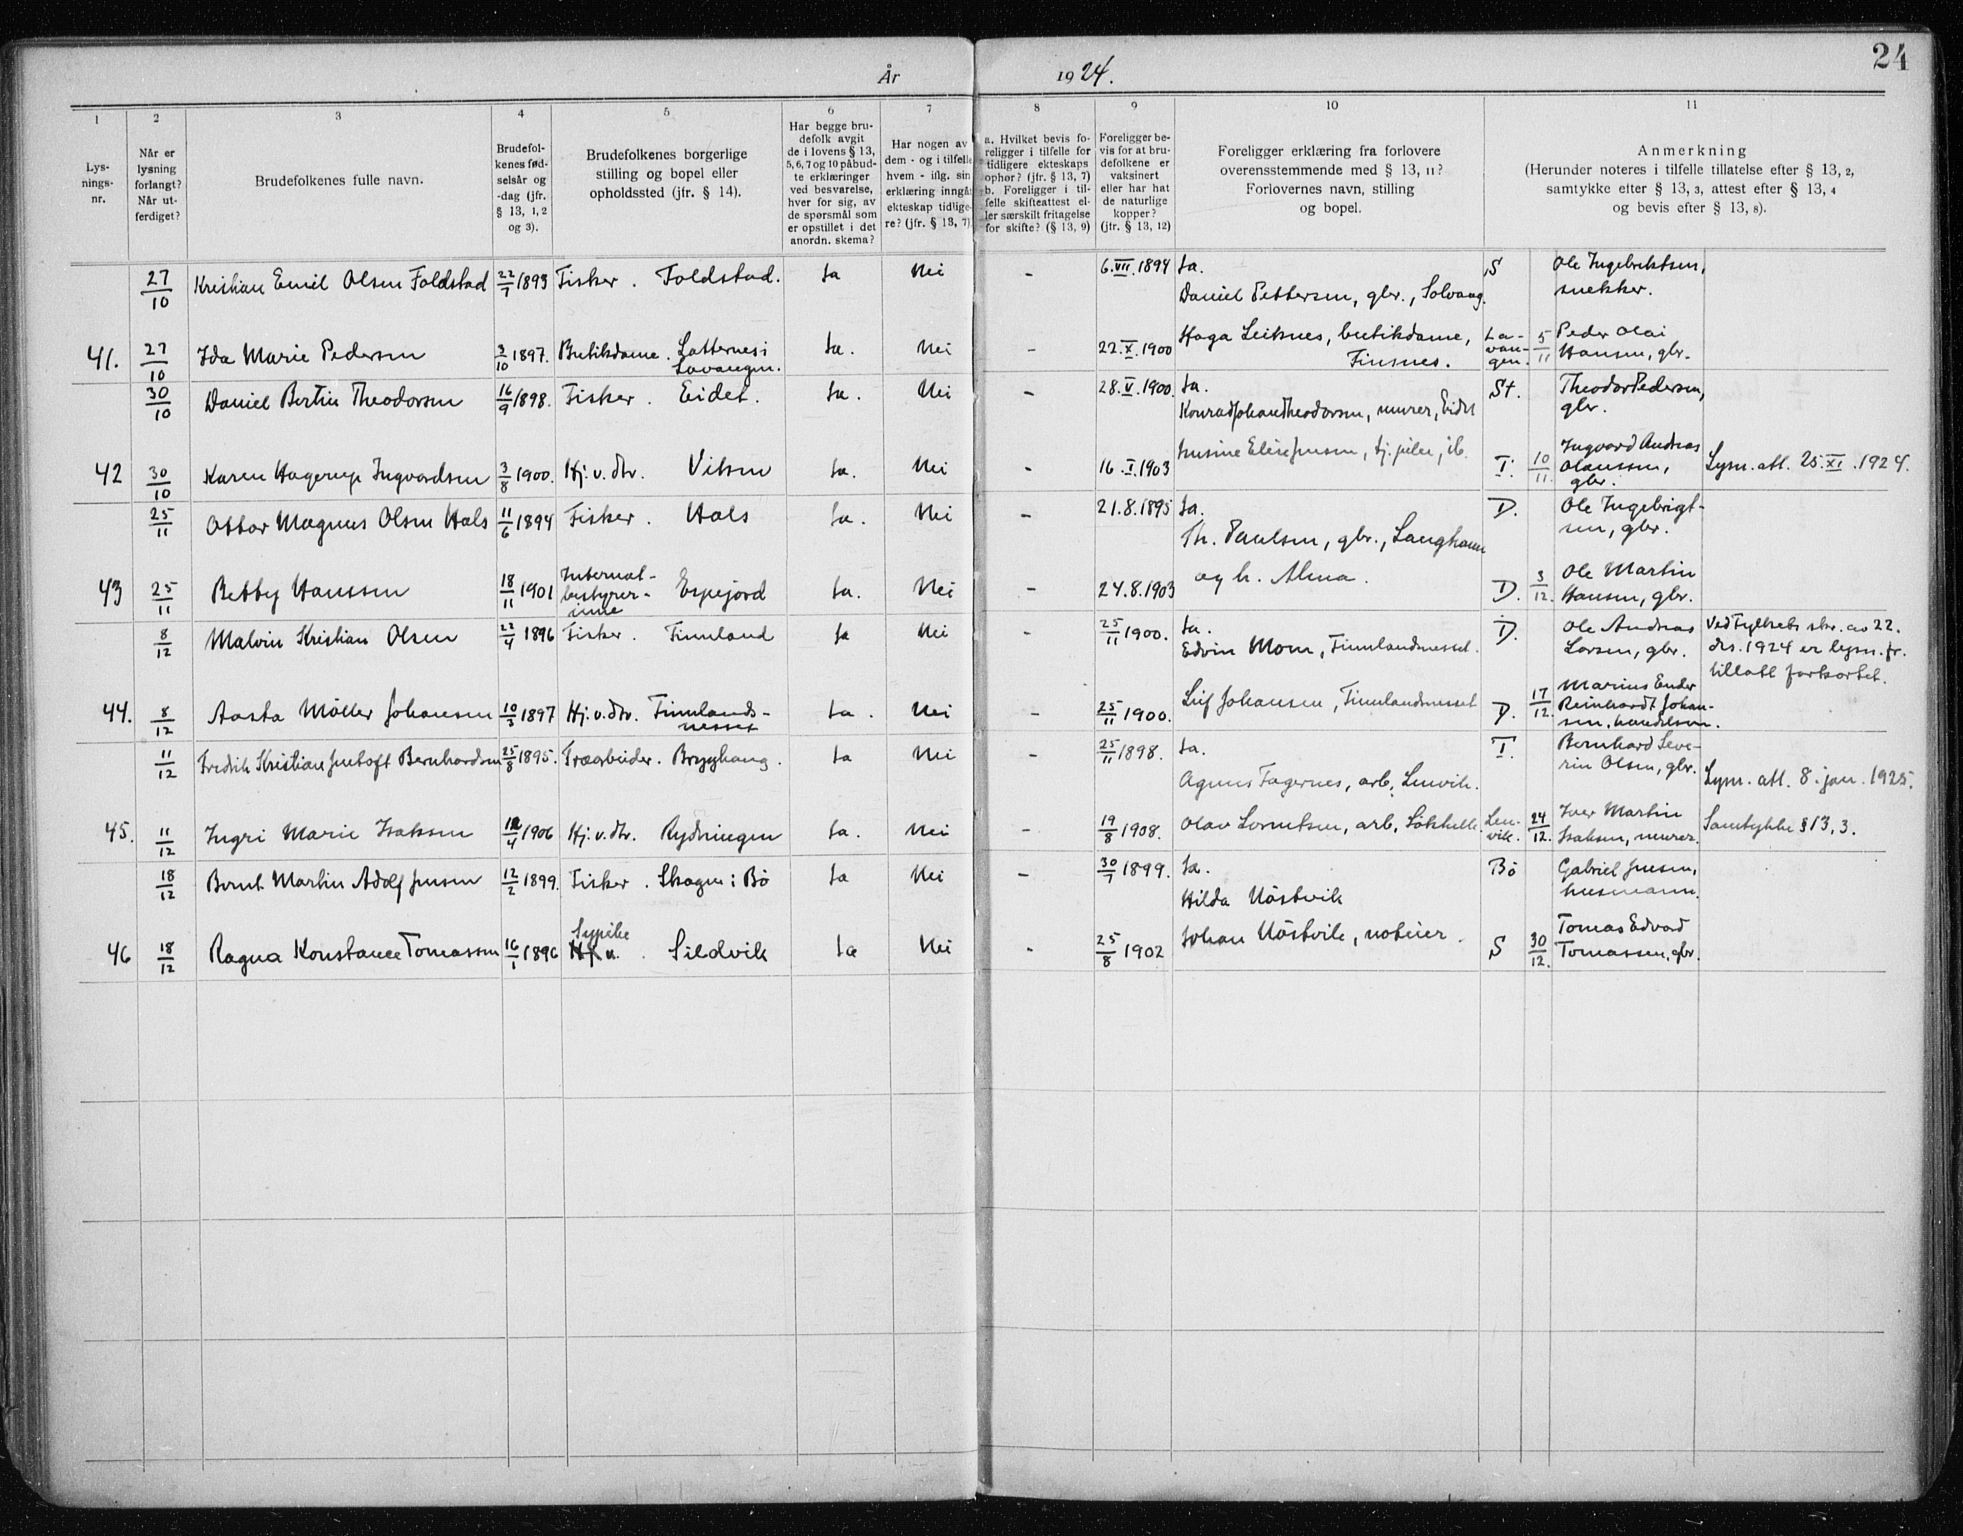 24
År 1924.
1 2 3 4 5 6 7 8 9 10 11
Lys-
nings-
nr.
Når er
lysning
forlangt?
Når ut-
ferdiget?
Brudefolkenes fulle navn.
Brudefol-
kenes fød-
selsår og
-dag (jfr.
§ 13, 1, 2
og 3).
Brudefolkenes borgerlige
stilling og bopel eller
opholdssted (jfr. § 14).
Har begge bru-
defolk avgit
de i lovens § 13,
5, 6, 7 og 10 påbud-
te erklæringer
ved besvarelse,
hver for sig, av
de spørsmål som
er opstillet i det
anordn. skema?
Har nogen av
dem - og i tilfelle
hvem - iflg. sin
erklæring inngå
ekteskap tidlige-
re? (jfr. § 13, 7)
a. Hvilket bevis fo-
religger i tilfelle for
tidligere ekteskaps
ophør? (jfr. § 13, 7)
b. Foreligger i til-
felle skifteattest el-
ler særskilt fritagelse
for skifte? (§ 13, 9)
Foreligger be-
vis for at bru-
defolkene er
vaksinert
eller har hat
de naturlige
kopper?
(jfr. § 13, 12)
Foreligger erklæring fra forlovere
overensstemmende med § 13, 11?
Forlovernes navn, stilling
og bopel.
Anmerkning
(Herunder noteres i tilfelle tillatelse efter § 13, 2,
samtykke efter § 13, 3, attest efter § 13, 4
og bevis efter § 13, 8).
27/10 Kristian Emil Olsen Foldstad 22/7 1893 Fisker. Foldstad. Ja Nei - 6.VII.1894 Ja. S Ole Ingebriktsen,
Daniel Pettersen, gbr., Solvang. snekker.
41. 27/10 Ida Marie Pedersen 3/10 1897. Butikdame. Lotternes i Ja. Nei - 22.X.1900 Haga Leiknes, butikdame, La- 5/11 Peder Olai
Lavangen. Finsnes. van- Hansen, gbr.
gen.
30/10 Daniel Bertin Theodorsen 16/9 1898. Fisker. Eidet. Ja. Nei - 28.V.1900. Ja. St. Theodor Pedersen,
Konrad Johan Theodorsen, murer, Eidet gbr.
42 30/10 Karen Hagerup Ingvardsen 3/8 1900. Hj. v. dtr. Ja. Nei - 16.I.1903 T. 10/11. Ingvard Andreas
Olaussen, Lysn. att. 25.XI.1924.
gbr.
25/11 Ottar Magnus Olsen Hals 11/6 1894 Fisker. Hals Ja. Nei - 21.8.1895 Ja. D. Ole Ingebrigt-
Th. Paulsen, gbr., Langhamn sen, gbr.
43 25/11 Betty Hanssen 18/11 1901 Internat- Espejord Ja. Nei - 24.8.1903 og h. Alma. D. 3/12. Ole Martin
bestyrer- Hansen, gbr.
inne
8/12 Malvin Kristian Olsen 22/4 1896 Fisker. Finnland Ja Nei - 25/11 1900. Ja. D. Ole Andreas Ved Fylkets skr. av 22.
Edvin Moen, Finnlandnesset. Larsen, gbr. des. 1924 er lysn. fr.
tillatt forkortet.
44. 8/12 Aasta Möller Johansen 10/3 1897 Hj. v. dtr. Finnlands- Ja. Nei - 25/11 1900. Leif Johansen, Finnlandnesset D. 17/12. Marius Ender
nesset Reinhardt Johan-
sen, handelsm.
11/12 Fredrik Kristian Jentoft Bernhardsen 25/8 1895. Træarbeider. Brygghaug. Ja Nei - 25/11 1898. Ja. T. Bernhard Seve-
rin Olsen, gbr.
Agnus Fagernes, arb., Lenvik. Lysn. att. 8. jan. 1925.
45. 11/12 Ingri Marie Isaksen 12/4 1906 Hj. v. dtr. Rydningen Ja. Nei - 19/8 1908. Olav Lorentsen, arb., Len- 24/12. Iver Martin Samtykke § 13, 3.
vik. Isaksen, murer.
18/12 Bernt Martin Adolf Jensen 12/2 1899. Fisker. Skogen i Bö Ja Nei - 30/7 1899. Ja. Bö Gabriel Jensen,
Hilda Nöstvik husmann.
46 18/12 Ragna Konstance Tomassen 16/1 1896 Sypike Sildvik Ja Nei - 25/8 1902 Johan Nöstvik, noteier. S 30/12. Tomas Edvad
Hj. v. Tomassen, gbr.